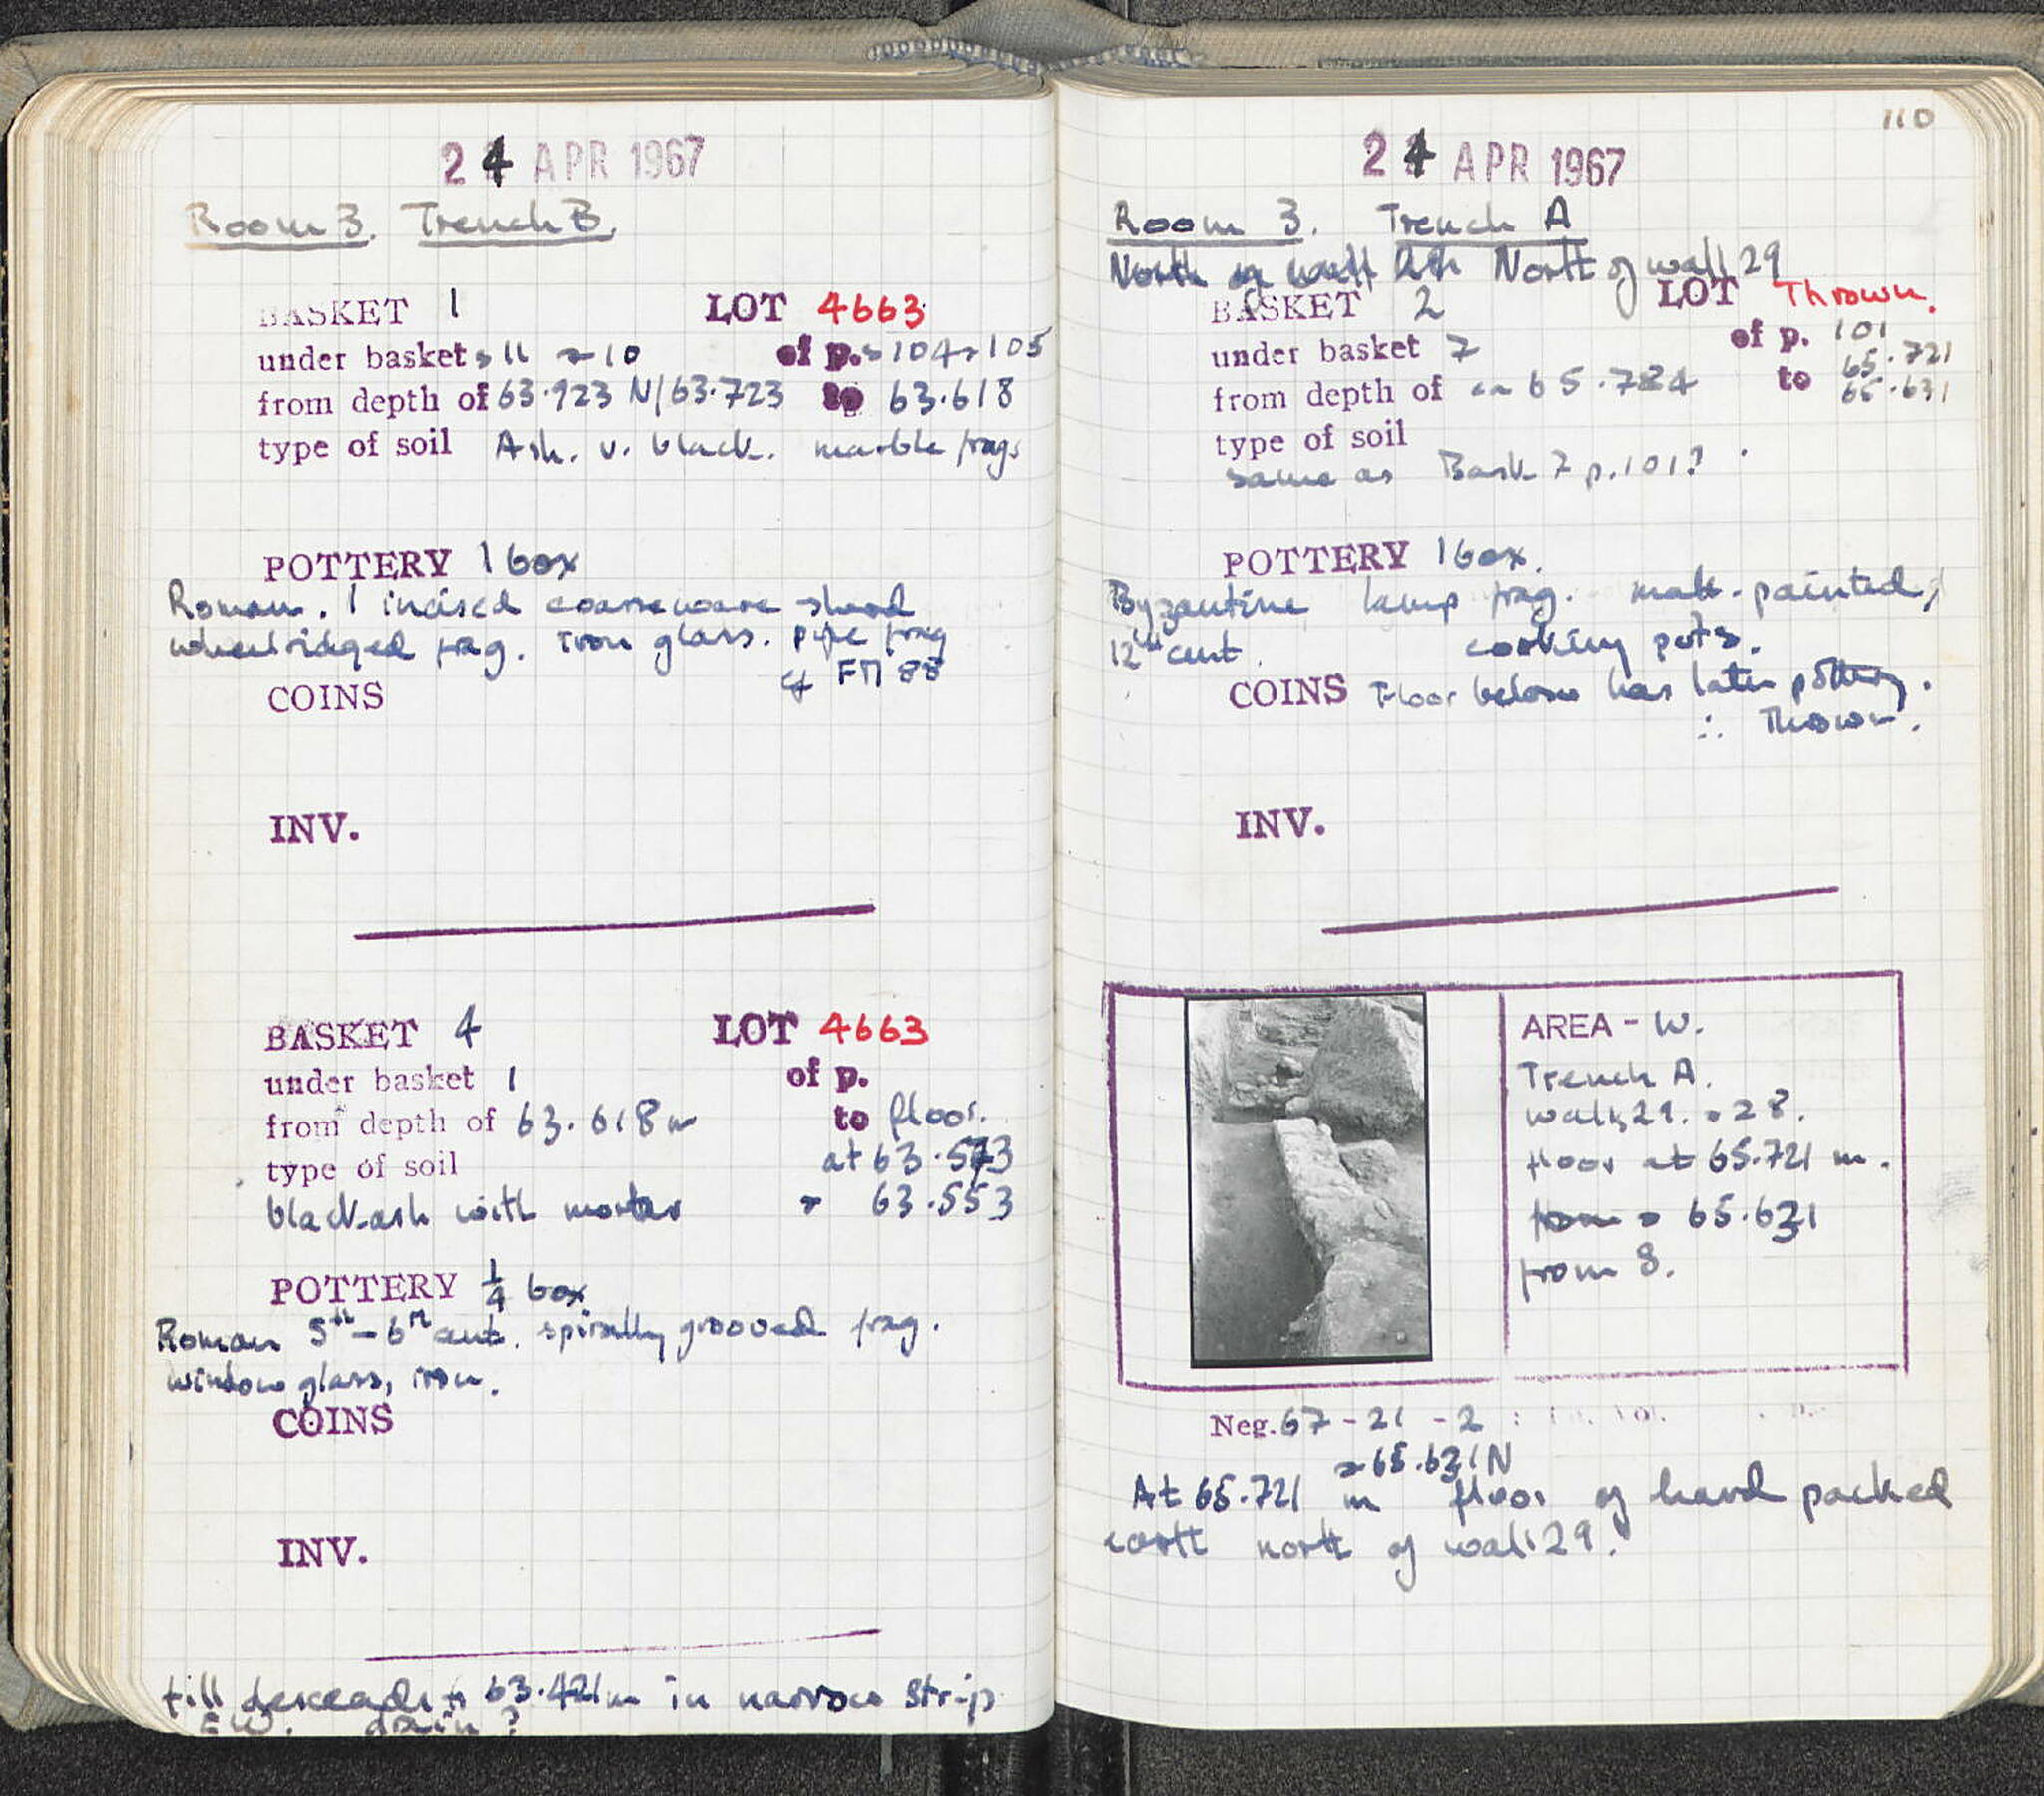 24 APR 1967
Room 3. Trench B.
BASKET 1 LOT 4663
under baskets 11 + 10 of p.s 104 + 105
from depth of 63.923 N/63.723 to 63.618
type of soil Ash. v. black. marble frags
POTTERY 1 box
Roman. 1 incised coarseware sherd
wheelridged frag. iron glass. pipe frag
cf FM 88
COINS
INV.
BASKET 4 LOT 4663
under basket 1 of p.
from depth of 63.618 m to floor.
type of soil at 63.573
black ash with mortar + 63.553
POTTERY 1/4 box
Roman 5th - 6th cent. spirally grooved frag.
window glass, iron.
COINS
INV.
fill descends to 63.421m in narrow strip
EW. drain?
110
24 APR 1967
Room 3. Trench A
North of wall North of wall 29
BASKET 2 LOT Thrown.
under basket 7 of p. 101
from depth of ca 65.784 to 65.721
65.631
type of soil
same as Bask 7 p. 101?
POTTERY 1 box.
Byzantine lamp frag. matt-painted,
12th cent. cooking pots.
COINS Floor below has later pottery.
∴ Thrown.
INV.
AREA - W.
Trench A.
walls 29. + 28.
floor at 65.721 m.
from + 65.631
from S.
Neg. 67 - 21 - 2
+ 65.631 N
At 65.721 m floor of hard packed
earth north of wall 29.